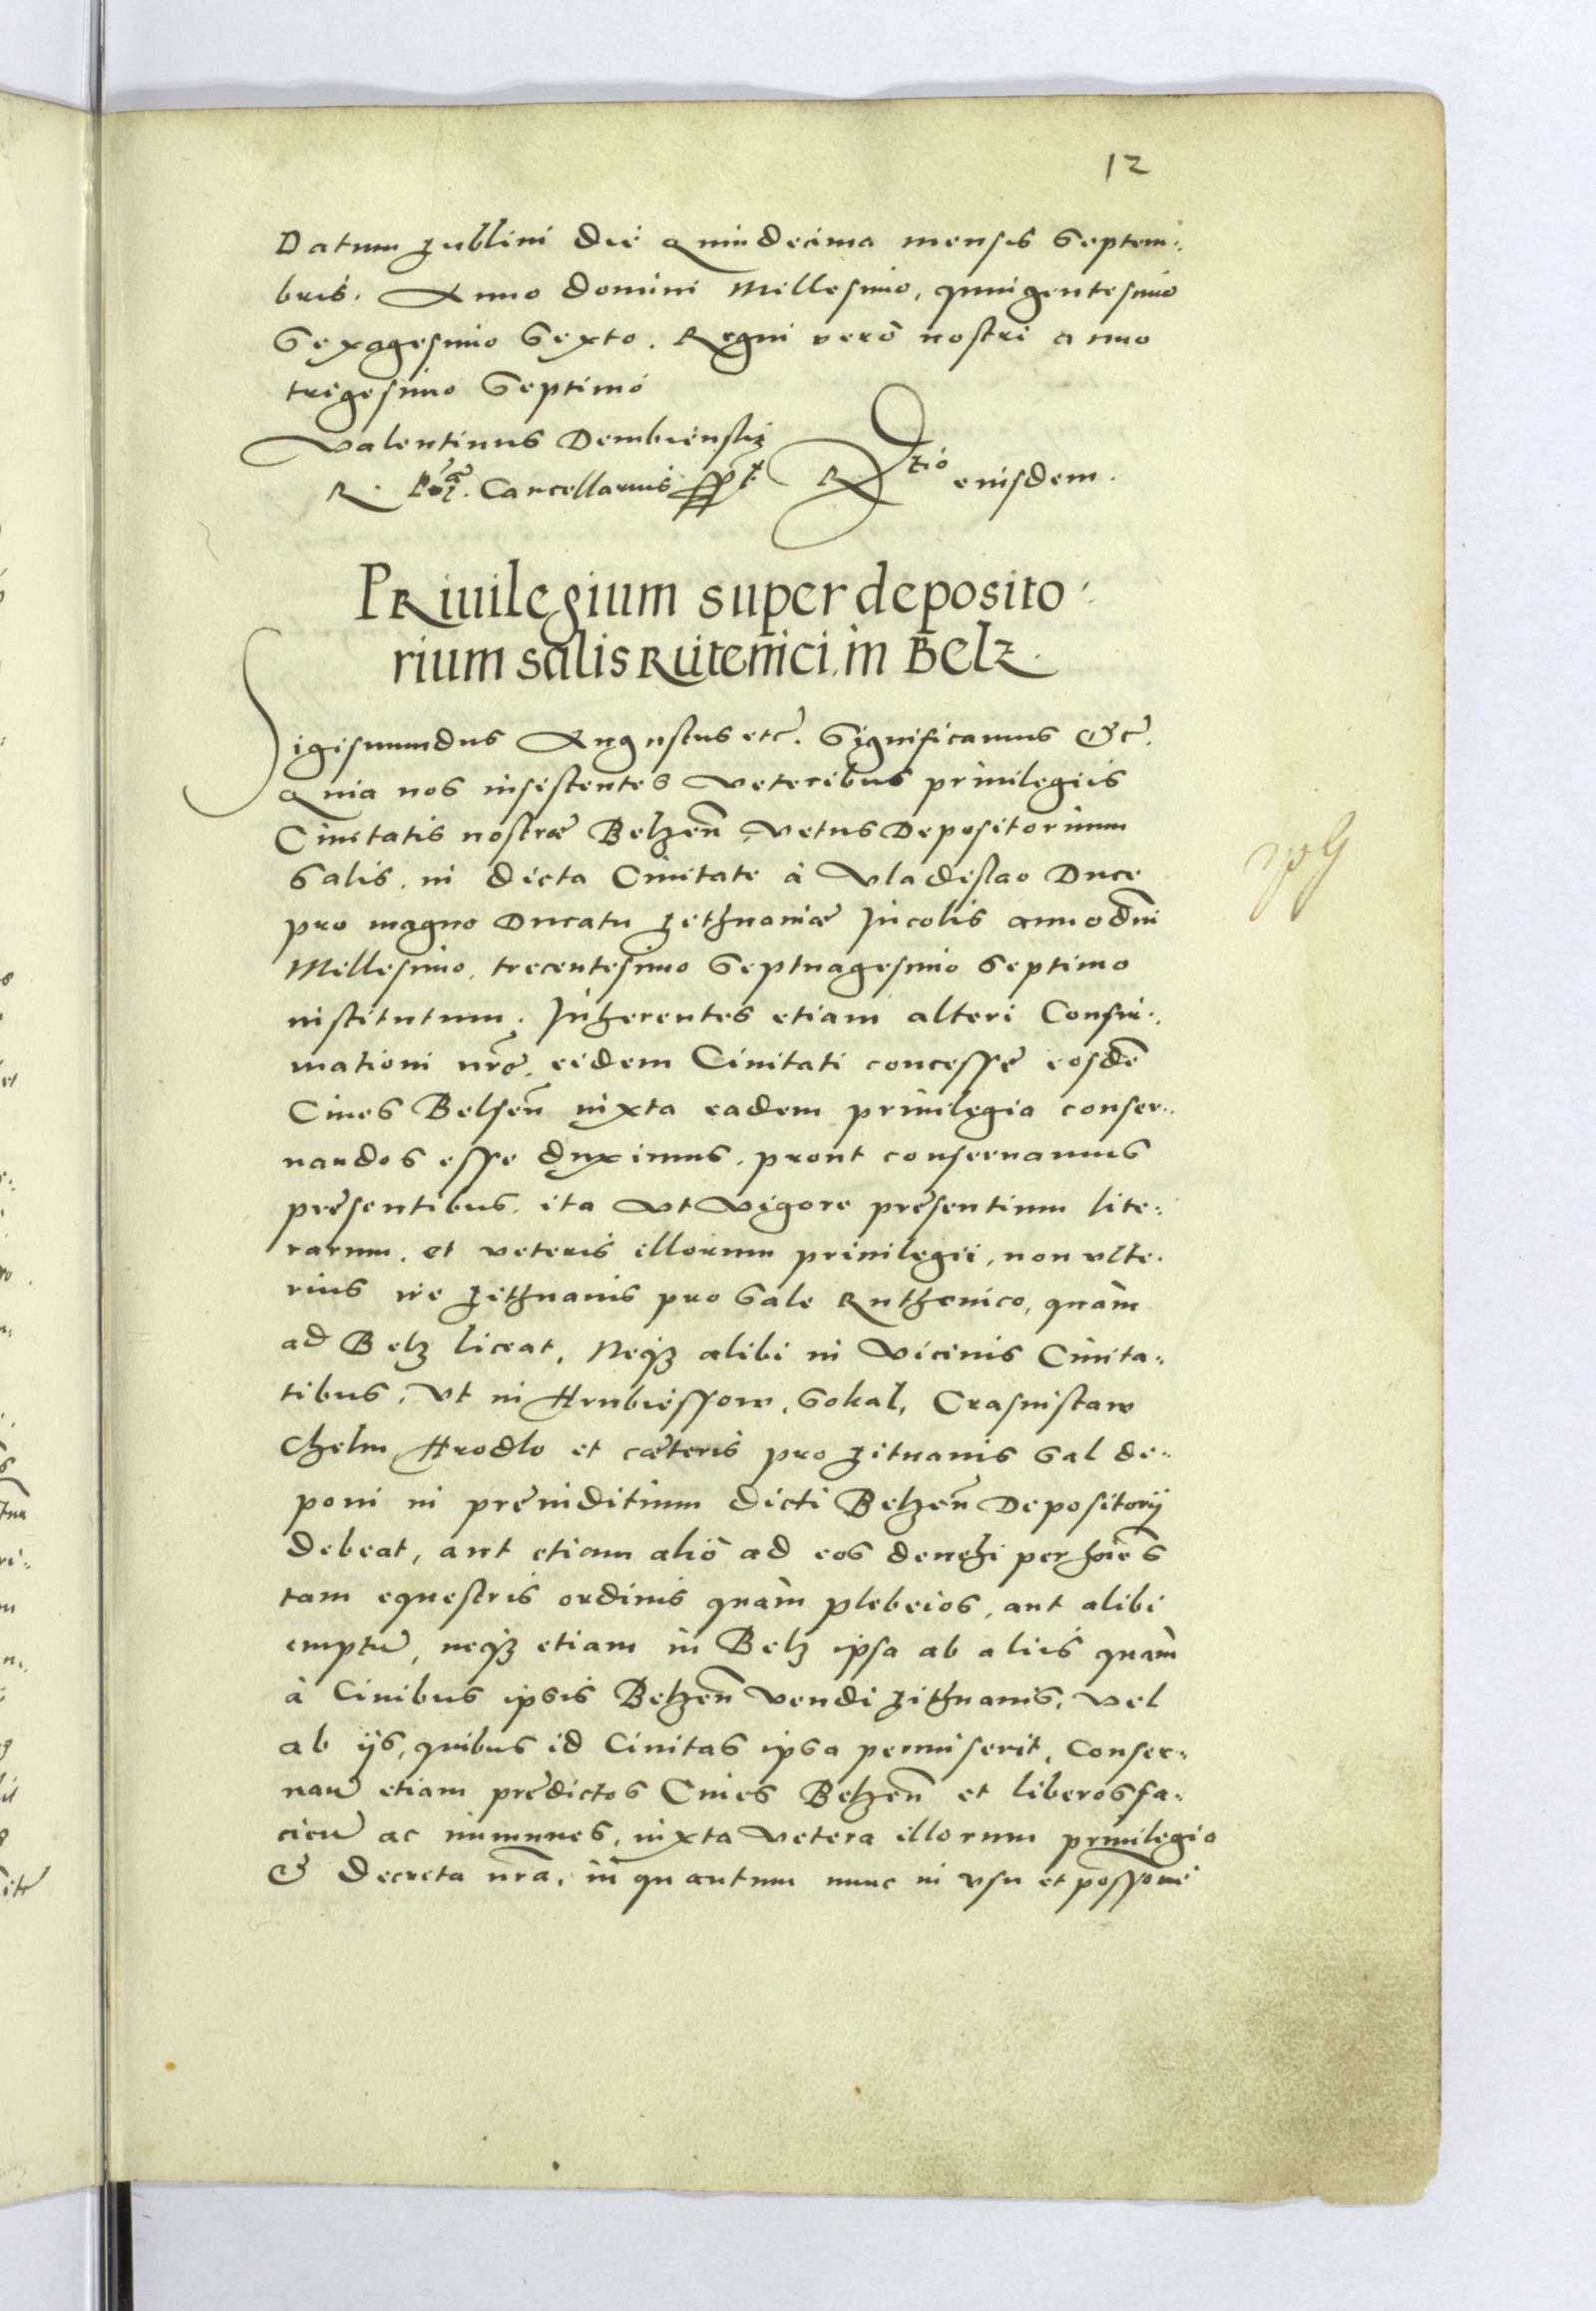 12
Datum Lublini die Quindecima mensis Septem:
bris. Anno domini Millesimo, quingentesimo
Sexagesimo Sexto. Regni verò nostri anno
trigesimo Septimo
Valentinus Dembienskj
R. Cancellarius Rtio eiusdem.
PRiuilegium super deposito:
rium salis Rutenici in Belz.
Sigismundus Augustus etc. Significamus &c.
Quia nos insistentes veteribus priuilegiis
Ciuitatis nostræ Belzen̄ vetus Depositorium
Salis, in dicta Ciuitate à Vladislao Duce
pro magno Ducatu Lithuaniæ Incolis anno dn̄i
Millesimo, trecentesimo Septuagesimo Septimo
institutum. Inherentes etiam alteri Confir:
mationi nrē, eidem Ciuitati concessę eosdē
Ciues Belsen̄ iuxta eadem priuilegia conser:
uandos esse duximus, prout conseruamus
presentibus, ita vt vigore presentium lite:
rarum, et veteris illorum priuilegii, non vlte:
rius ire Lithuanis pro Sale Ruthenico, quàm
ad Belz liceat, Neqȝ alibi in vicinis Ciuita:
tibus, vt in Hrubiessow, Sokal, Crasnistaw
Chelm Hrodlo et cæteris pro Lituanis Sal de:
poni in preiuditium dicti Belzen̄ Depositorij
debeat, aut etiam aliò ad eos deuehi per hoīes
tam equestris ordinis quàm plebeios, aut alibi
emptū, neqȝ etiam in Belz ipsa ab aliis quàm
à Ciuibus ipsis Belzen̄ vendi Lithuanis, vel
ab ijs, quibus id Ciuitas ipsa permiserit, Conser:
nau etiam predictos Ciues Belzen̄ et liberos fa:
cieū ac immunes, iuxta vetera illorum priuilegia
& decreta nrā, in quantum nunc in vsu et possoni